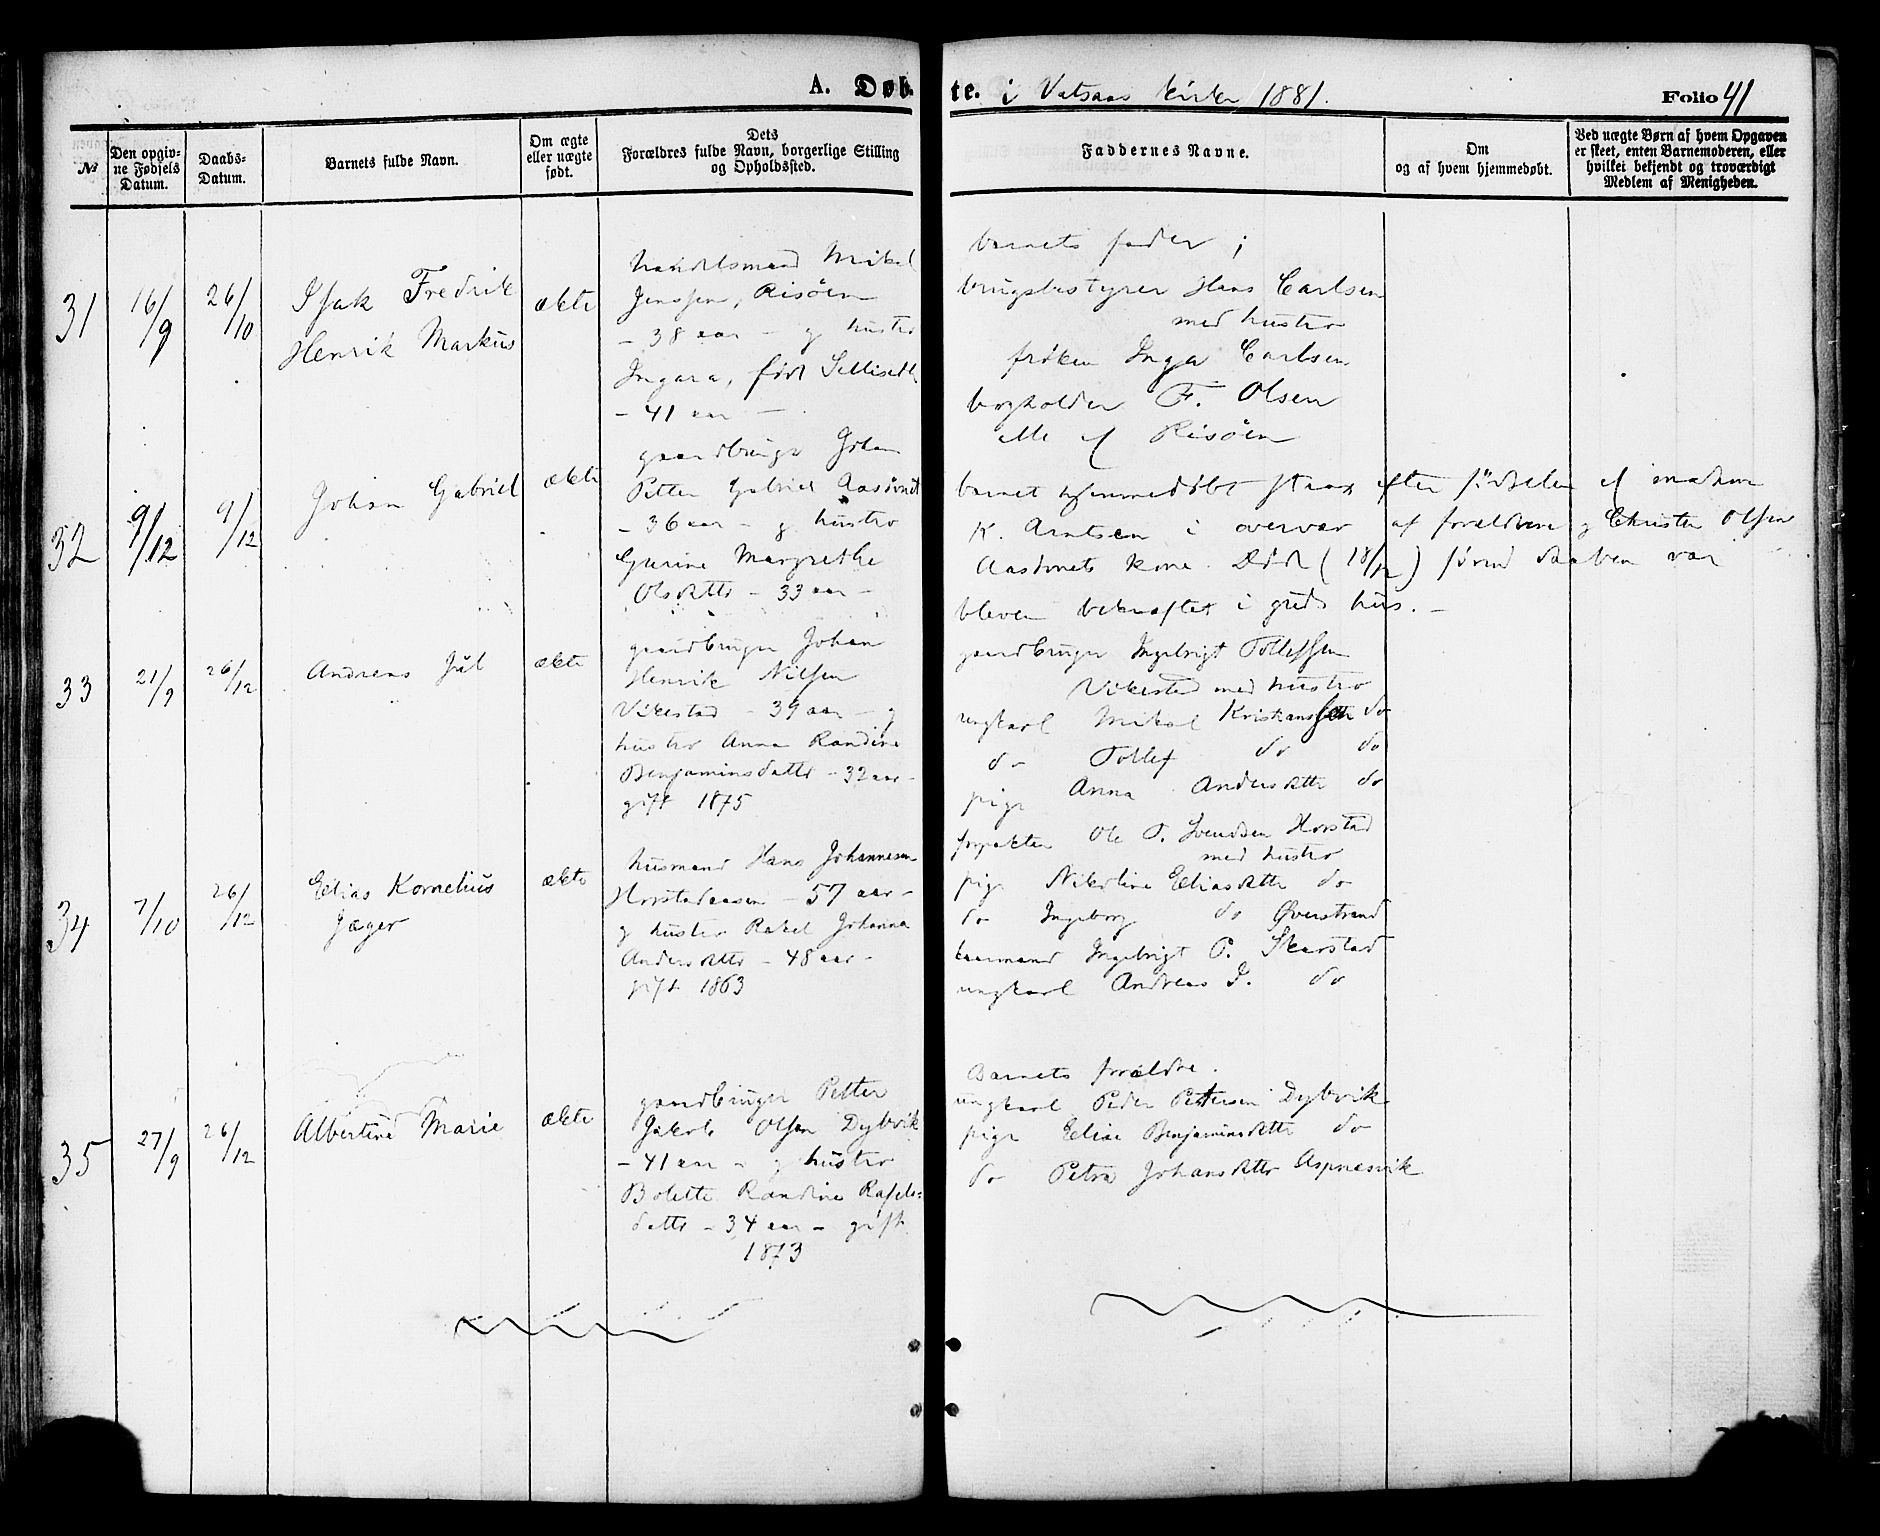 A. Døbte. i Vatsaas kirke 1881.
Folio 41
№
Den opgivne Fødsels Datum.
Daabs-Datum.
Barnets fulde Navn.
Om ægte eller uægte født.
Dets Forældres fulde Navn, borgerlige Stilling og Opholdssted.
Faddernes Navne.
Om og af hvem hjemmedøbt.
Ved uægte Børn af hvem Opgaven er skeet, enten Barnemoderen, eller hvilket bekjendt og troværdigt Medlem af Menigheden.
31
16/9
26/10
Isak Fredrik
Henrik Markus
ækte
handelsmand Mikal
Jenssen, Risöen
- 38 aar - g hustro
Ingara, født
- 41 aar -
barnets fader ;
brugsbestyrer Hans Carlsen
med hustro
frøken Inga Carlsen
bogholder F. Olsen
alle af Risöen
32
9/12
9/12
Johan Gabriel
ækte
gaardbruger Johan
Petter Gabriel Aasövnet
- 36 aar - g hustro
Gurine Margrethe
Olsdattr - 33 aar -
barnet hjemmedøbt strax efter fødselen af madam
K. Arntsen i overvær af forældrene g Olsen
kone. Död (18/12) förend daaben var
bleven bekræftet i guds hus. -
33
21/9
26/12
Andreas Jul
ækte
gaardbruger Johan
Henrik Nilsen
Vikestad - 39 aar - g
hustro Anna Randine
Benjaminsdattr - 32 aar -
gift 1875
gaardbruger Ingebrigt Tollefsen
Vikestad med hustro
ungkarl Mikal do
do Tollef do do
pige Anna Andersdttr do
34
7/10
26/12
Elias Kornelius
Jæger
ækte
husmand Hans Johannesen
Horstadaasen - 57 aar -
g hustro Rakel Johanna
Andersdttr - 48 aar -
gift 1863
forpakter Ole T. Svendsen Horstad
med hustro
pige Nikoline Eliasdttr do
do Ingeborg do Øverstrand
Ingebrigt P. Skarstad
ungkarl Andreas I. do
35
27/9
26/12
Albertine Marie
ækte
gaardbruger Petter
Jakob Olsen Dybvik
- 41 aar - g hustro
Bolette Randine Rafels-
dattr - 34 aar - gift
1873
Barnets forældre.
ungkarl Peder Pettersen Dybvik
pige Elise Benjaminsdttr do
do Petra Johansdttr Aspnesvik